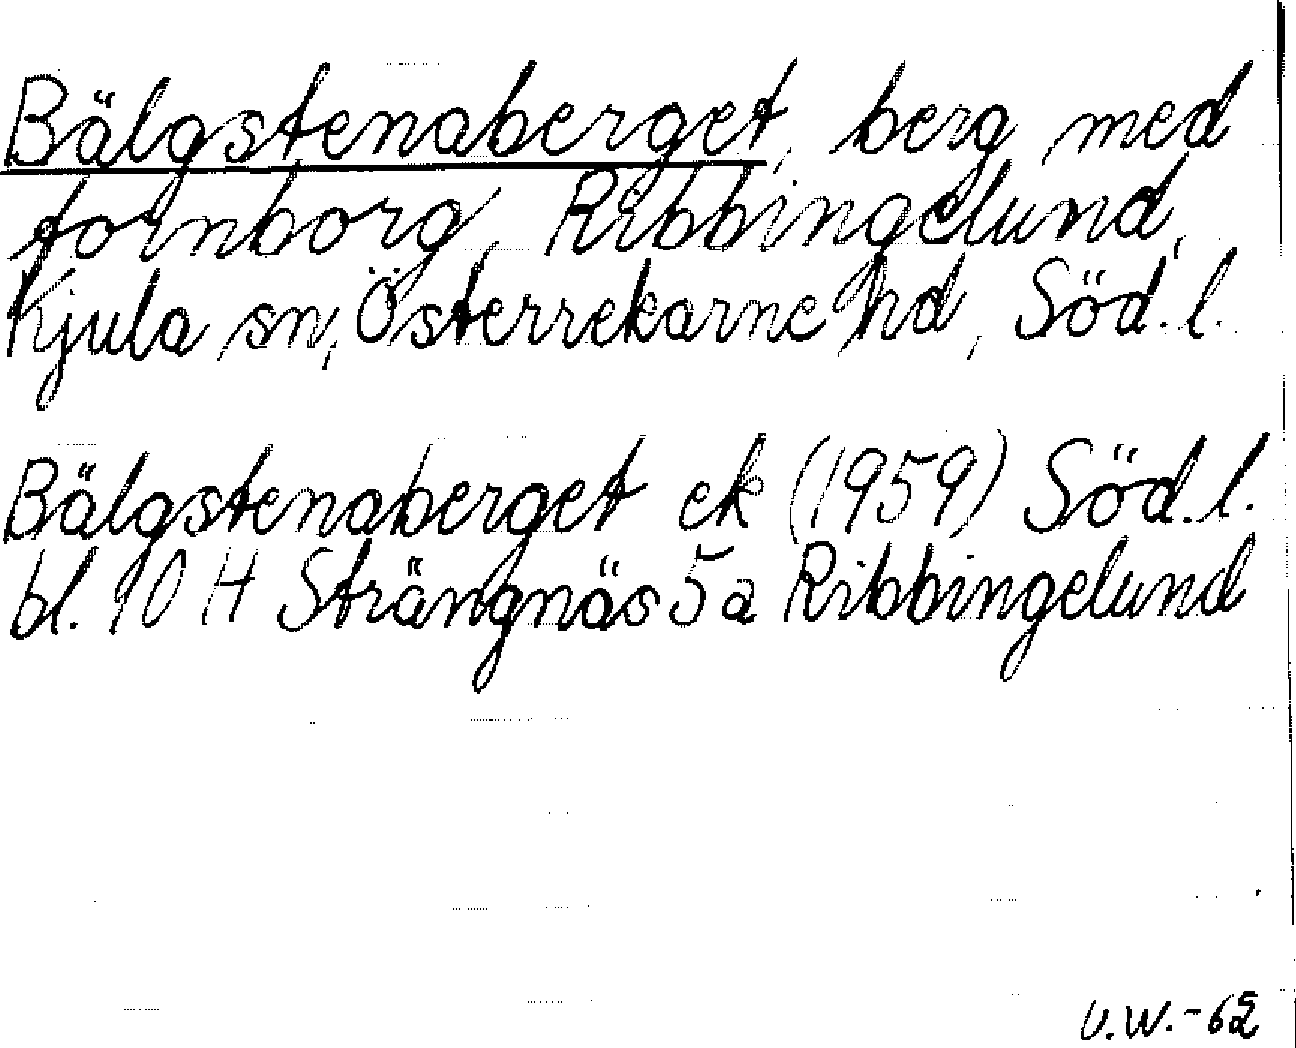 Bälgstenaberget, berg med
fornborg, Ribbingelund,
Kjula sn, Österrekarne hd, Söd. l.
Bälgstenaberget ek (1959) Söd. l.
bl. 10 H Strängnäs 5 a Ribbingelund
U.W.-62